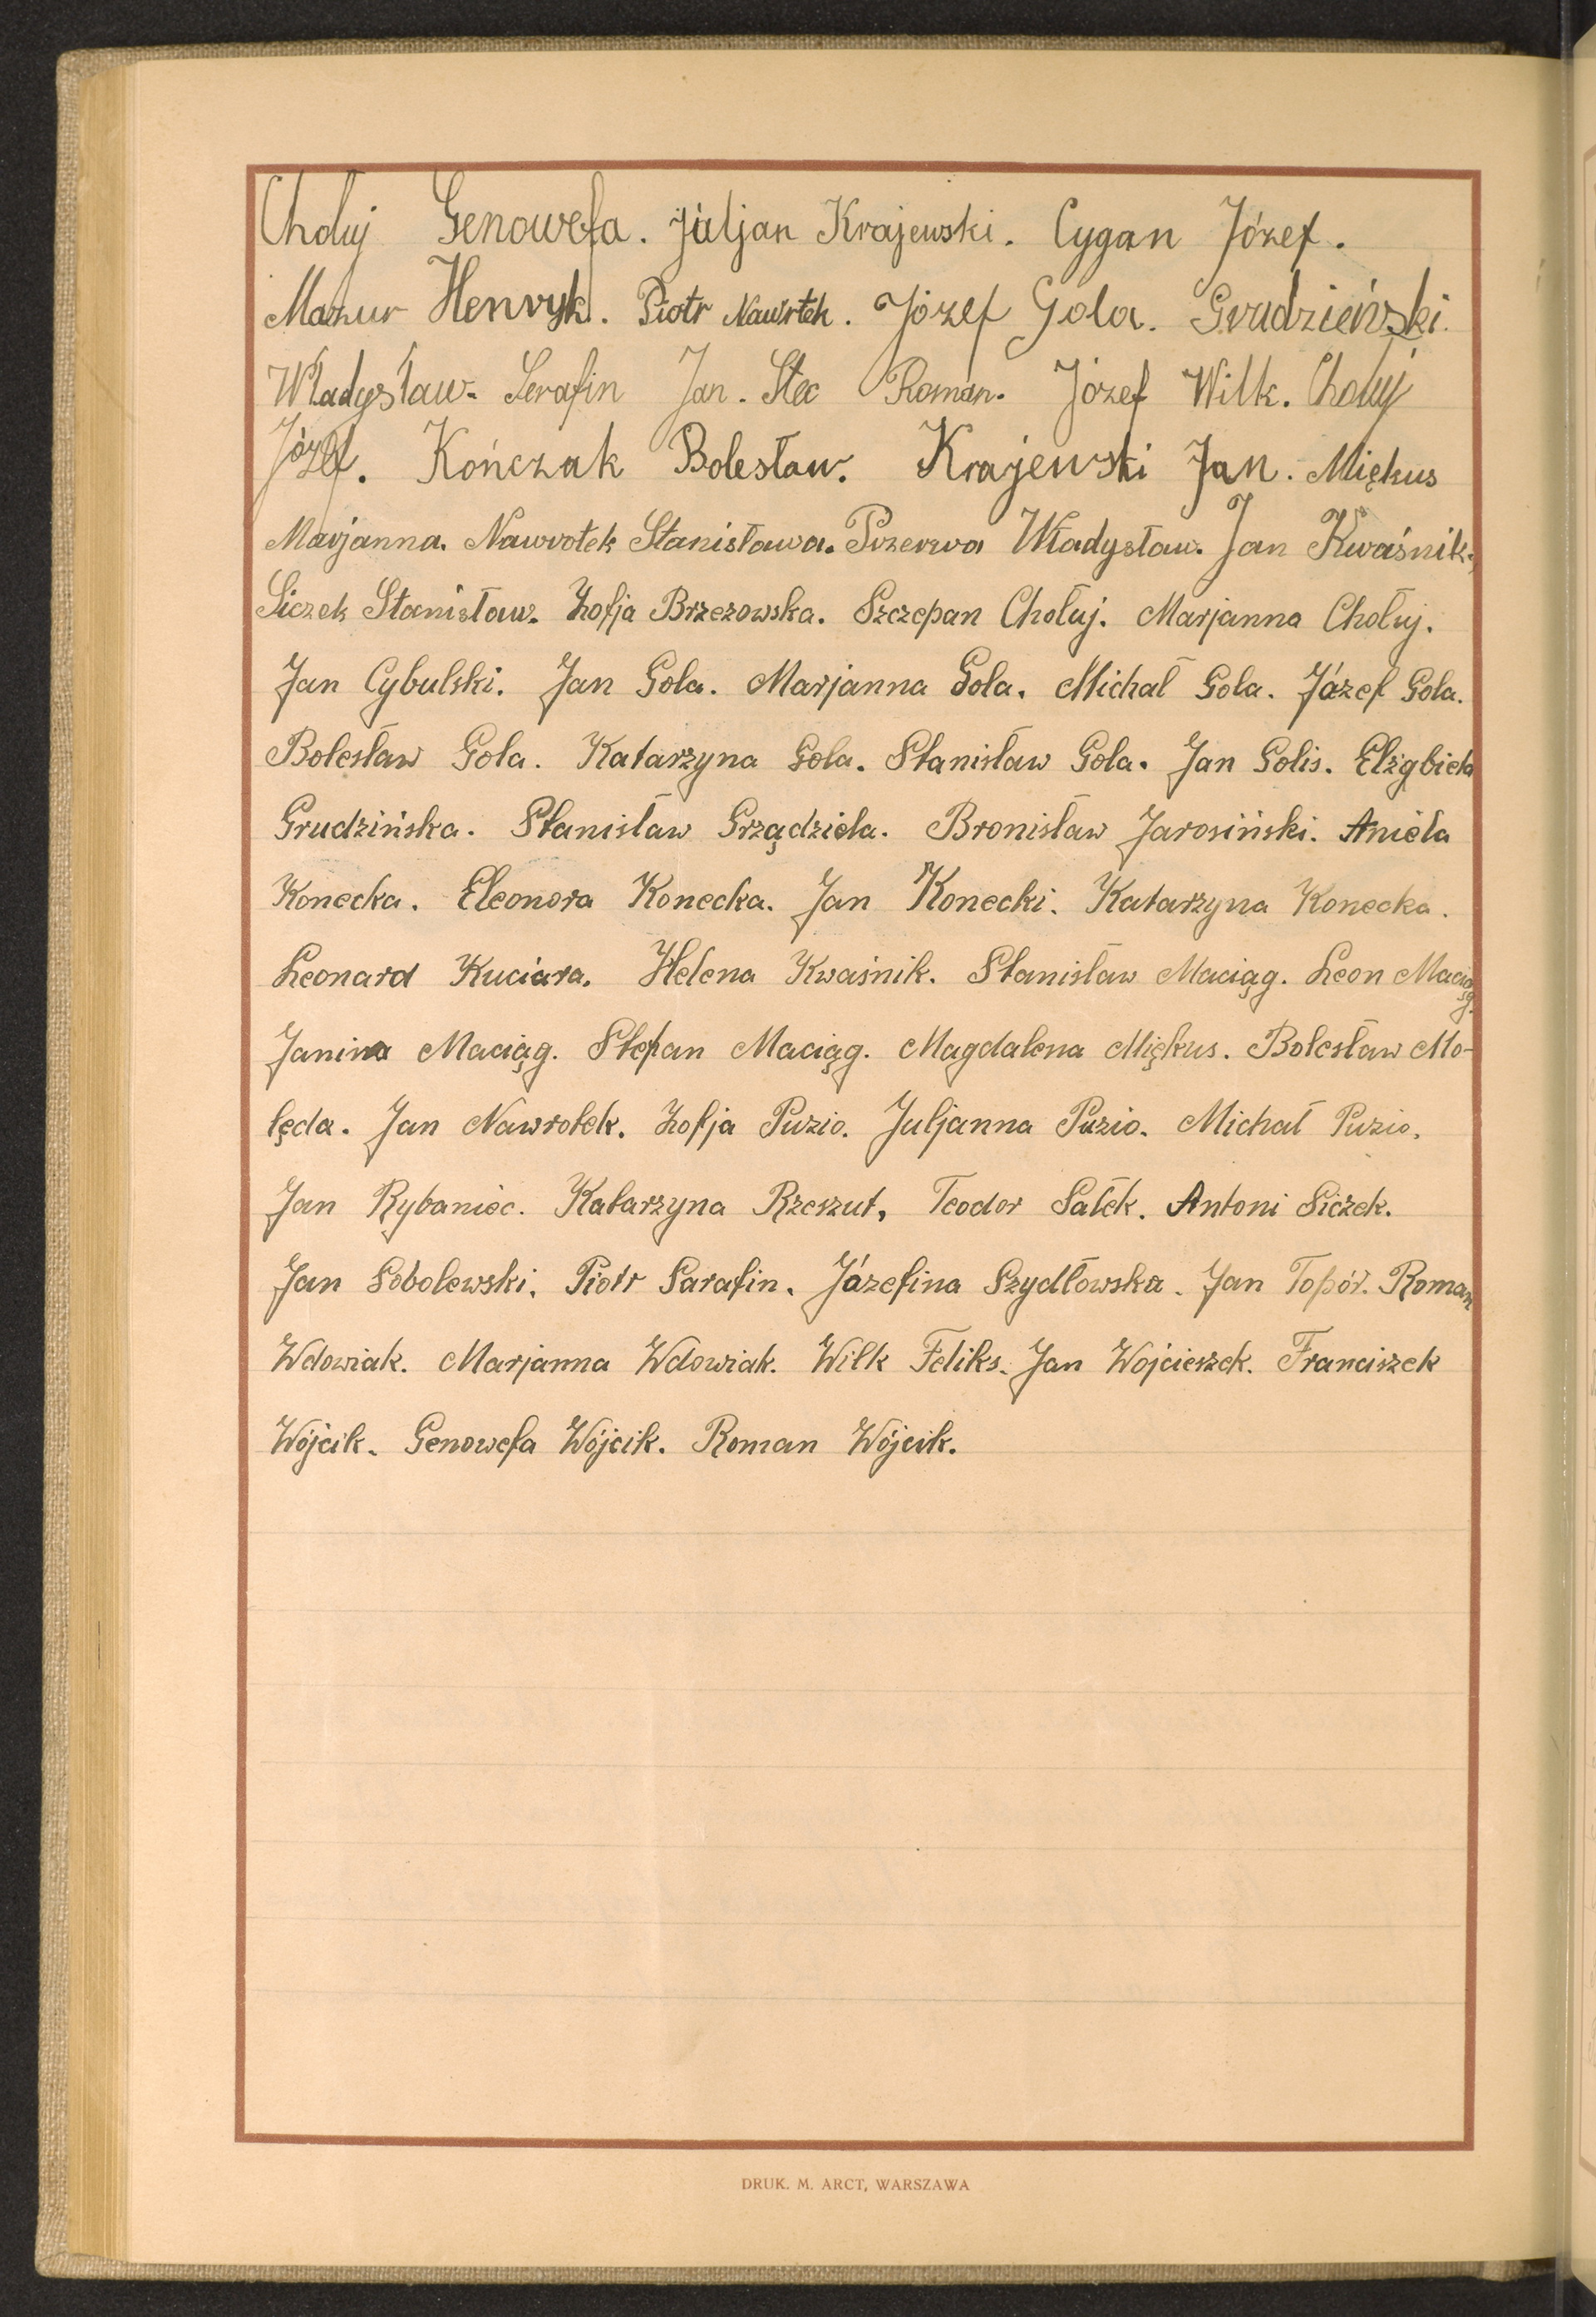 Chołuj Genowefa. Juljan Krajewski. Cygan Józef.
Mazur Henryk. Piotr Nawrtek. Józef Gola. Grudzieński
Władysław. Serafin Jan. Stec Roman. Józef Wilk. Chołuj
Józef. Kończak Bolesław. Krajewski Jan. Miękus
Marjanna. Nawrotek Stanisława. Przerwa Władysław. Jan Kwaśnik.
Siczek Stanisław. Zofja Brzezowska. Szczepan Chołuj. Marjanna Chołuj.
Jan Cybulski. Jan Gola. Marjanna Gola. Michał Gola. Józef Gola.
Bolesław Gola. Katarzyna Gola. Stanisław Gola. Jan Golis. Elżbieta
Grudzińska. Stanisław Grządziela. Bronisław Jarosiński. Aniela
Konecka. Eleonora Konecka. Jan Konecki. Katarzyna Konecka.
Leonard Kuciara. Helena Kwaśnik. Stanisław Maciąg. Leon Maciąg.
Janina Maciąg. Stefan Maciąg. Magdalena Miękus. Bolesław Mo-
lęda. Jan Nawrotek. Zofja Puzio. Juljanna Puzio. Michał Puzio.
Jan Rybaniec. Katarzyna Rzeszut, Teodor Sałek. Antoni Siczek.
Jan Sobolewski. Piotr Sarafin. Józefina Szydłowska. Jan Topór. Roman
Wdowiak. Marjanna Wdowiak. Wilk Feliks. Jan Wojcieszek. Franciszek
Wójcik. Genowefa Wójcik. Roman Wójcik.
DRUK. M. ARCT, WARSZAWA